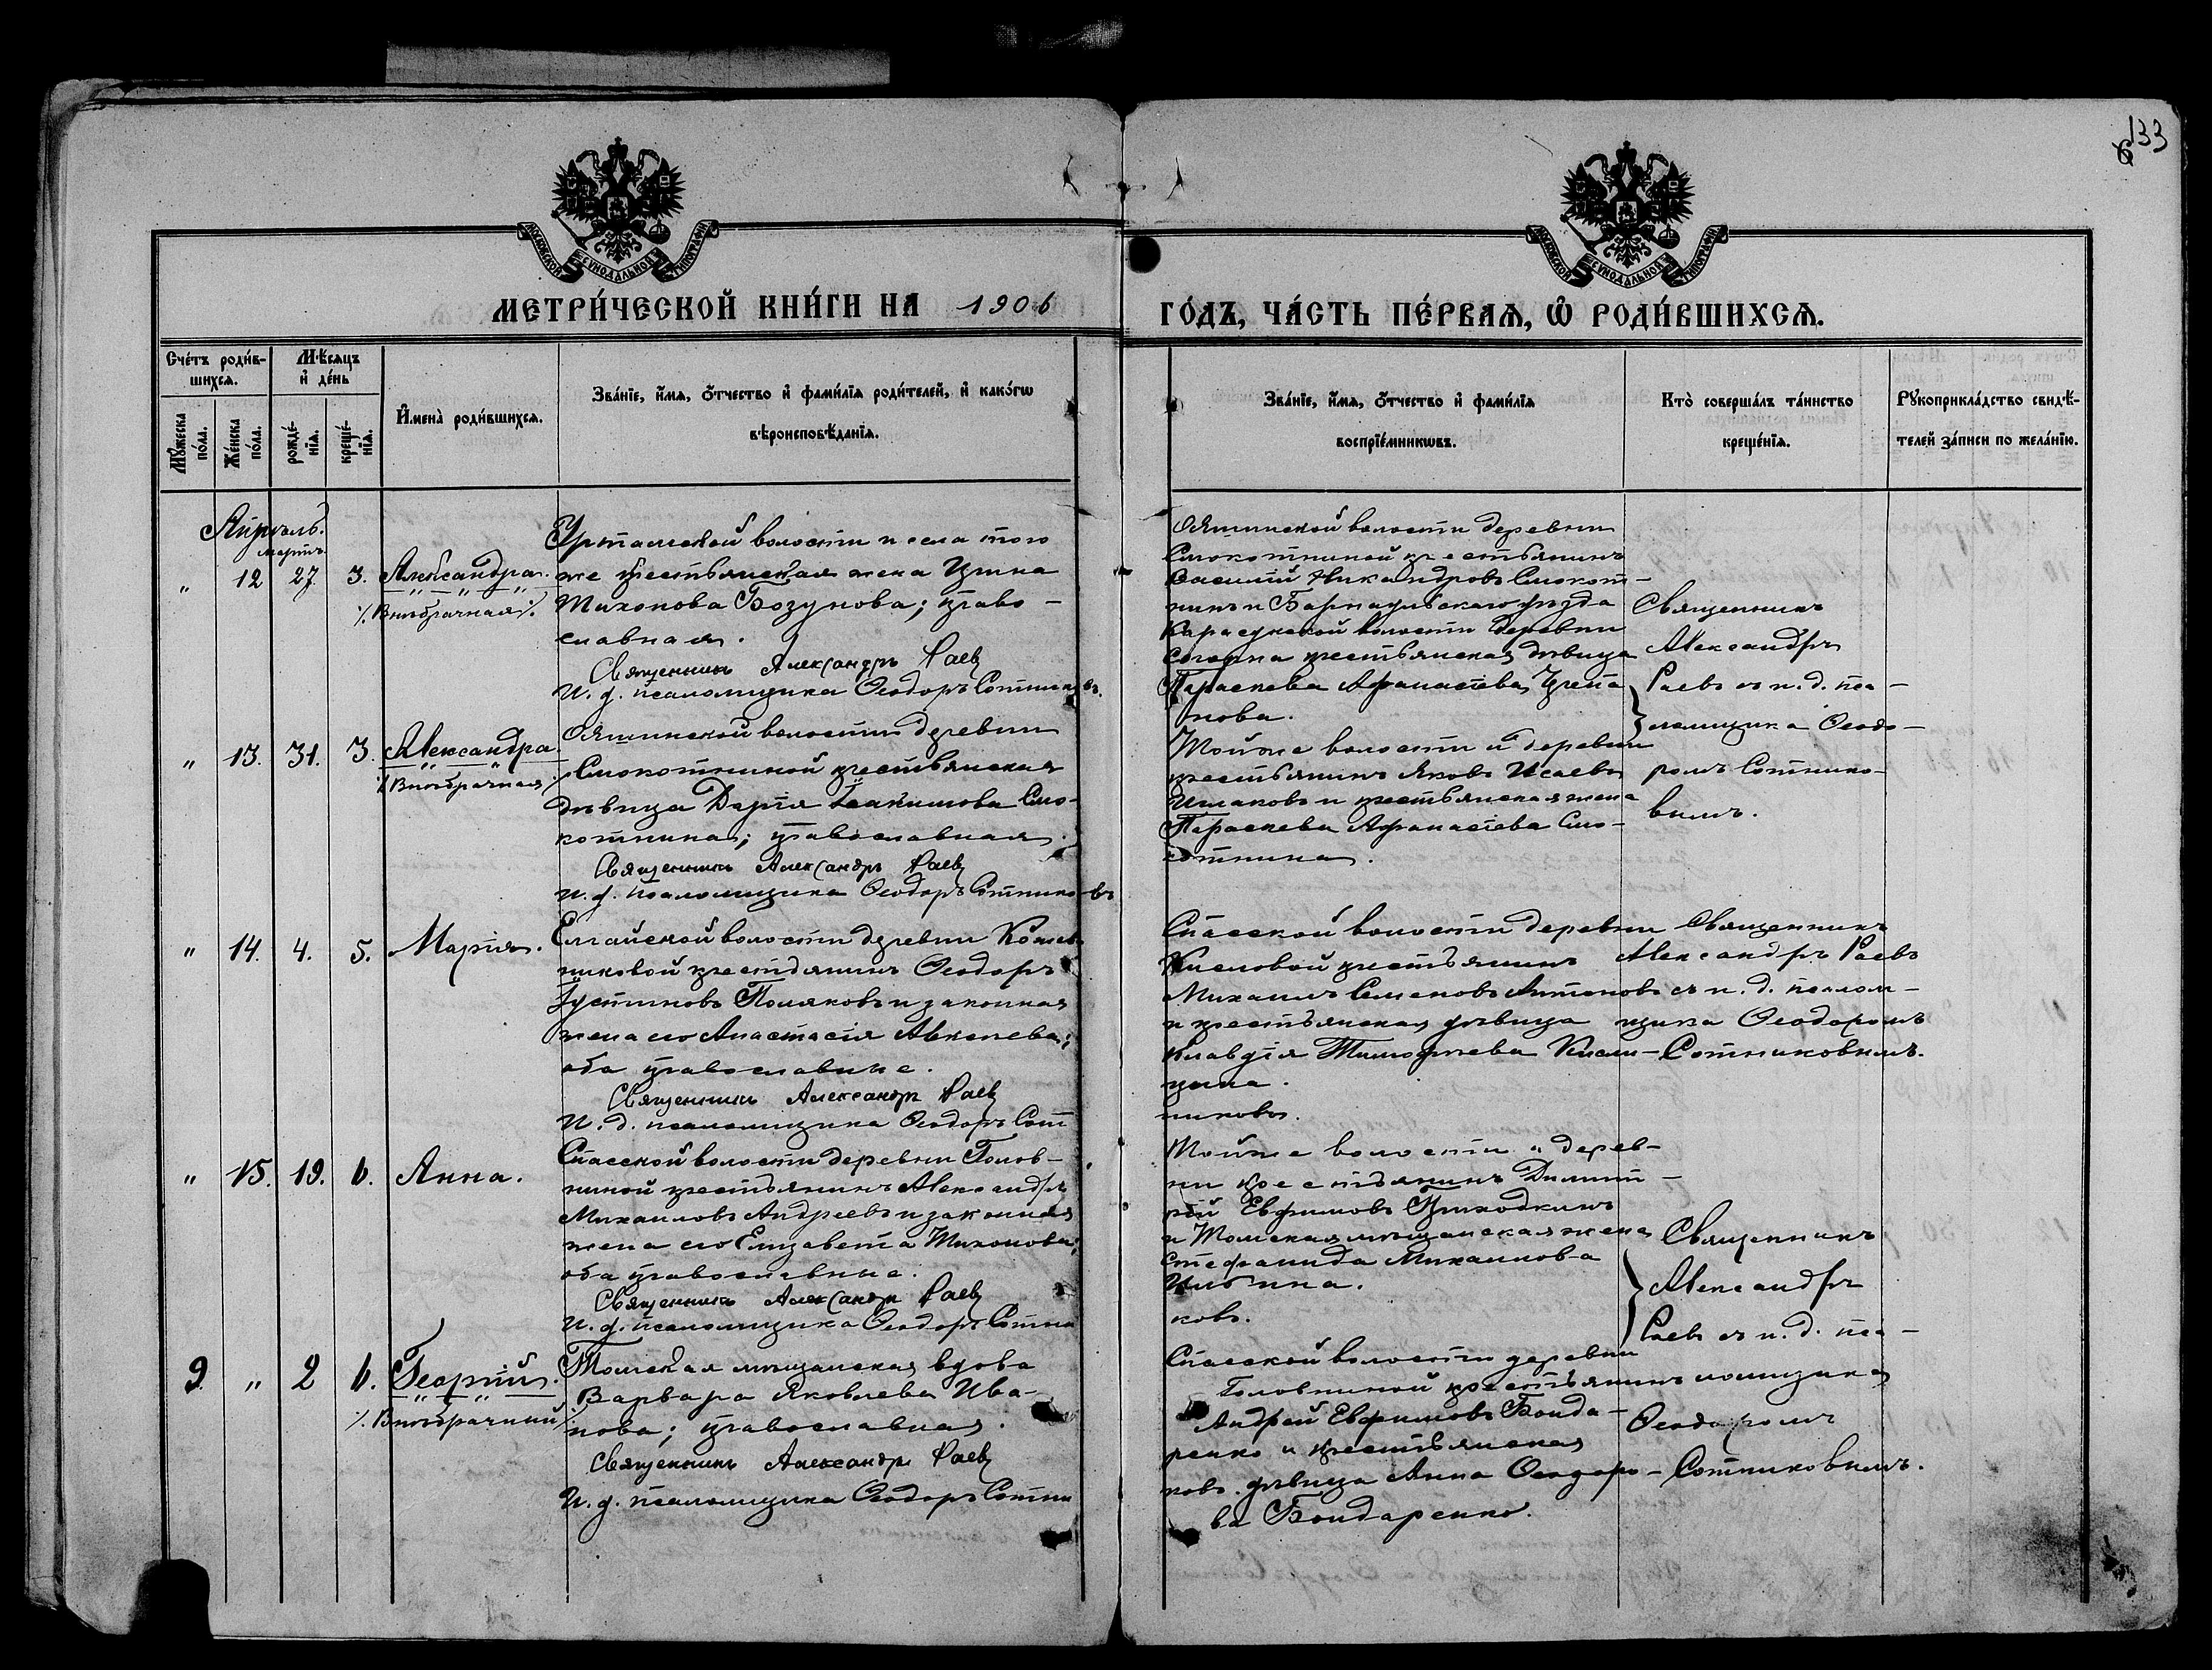 133
6
МОСКОВСКОЙ СѴНОДАЛЬНОЙ ТИПОГРАФІИ
МОСКОВСКОЙ СѴНОДАЛЬНОЙ ТИПОГРАФІИ
МЕТРИ́ЧЕСКОЙ КНИ́ГИ НА 1906
ГО́ДЪ, ЧА́СТЬ ПЕ́РВАѦ, Ѡ҆ РОДИ́ВШИХСѦ.
Сче́тъ роди́в-
шихсѧ.
Мѣ́сѧцъ
и҆ де́нь
Мꙋ́жеска по́ла.
Же́нска по́ла.
рожде́-нїѧ.
креще́-нїѧ.
И҆мена̀ роди́вшихсѧ.
Зва́нїе, и҆́мѧ, ѻ҆́тчество и҆ фами́лїѧ роди́телей, и҆ како́гѡ
вѣроисповѣ́данїѧ.
Зва́нїе, и҆́мѧ, ѻ҆́тчество и҆ фами́лїѧ
воспрїе́мникѡвъ.
Кто̀ соверша́лъ та́инство
креще́нїѧ.
Рꙋкоприкла́дство свидѣ́-
телей за́писи по жела́нїю.
Апрѣль.
мартъ
" 12 27. 3. Александра.
/. Внѣбрачная /.
Уртамской волости и села того
же крестьянская жена Ирина
Тихонова Бозунова; право-
славная.
Священникъ Александръ Раевъ
И. д. псаломщика Ѳеодоръ Сотниковъ.
Ояшинской волости деревни
Смокотниной крестьянинъ
Василій Никандровъ Смокот-
нинъ и Барнаульскаго уѣзда
Карасукской волости деревни
крестьянская дѣвица
Параскева Афанасіева
нова.
Священникъ
Александръ
Раевъ съ и. д. пса-
ломщика Ѳеодо-
ромъ Сотнико-
вымъ.
" 13. 31. 3. Александра.
/. Внѣбрачная /.
Ояшинской волости деревни
Смокотниной крестьянская
дѣвица Дарія Іоакимова Смо-
котнина; православная.
Священникъ Александръ Раевъ
И. д. псаломщика Ѳеодоръ Сотниковъ
Той же волости и деревни
крестьянинъ Яковъ Исаевъ
и крестьянская жена
Параскева Афанасіева Смо-
котнина.
" 14. 4. 5. Марія.
Елгайской волости деревни Кожев-
никовой крестьянинъ Ѳеодоръ
Іустиновъ Поляковъ и законная
жена его Анастасія
оба православные.
Священникъ Александръ Раевъ
И. д. псаломщика Ѳеодоръ Сот
никовъ.
Спасской волости деревни
Кисловой крестьянинъ
Михаилъ Семеновъ Антоновъ
и крестьянская дѣвица
Клавдія Тимофѣева Кисли-
цына.
Священникъ
Александръ Раевъ
съ и. д. псалом-
щика Ѳеодоромъ
Сотниковымъ.
" 15. 19. 6. Анна.
Спасской волости деревни Голов-
ниной крестьянинъ Александръ
Михаиловъ Андреевъ и законная
жена его Елизавета Тихонова;
оба православные.
Священникъ Александръ Раевъ
И. д. псаломщика Ѳеодоръ Сотни
ковъ.
Той же волости " дерев-
ни крестьянинъ Димит-
рій Евфимовъ Приходкинъ
и Томская мѣщанская жена
Стефанида Михаилова
Ильина.
Священникъ
Александръ
Раевъ съ и. д. пса-
ломщика
Ѳеодоромъ
Сотниковымъ.
9. " 2 6. Георгій.
/. Внѣбрачный /.
Томская мѣщанская вдова
Варвара Яковлева Ива-
нова; православная.
Священникъ Александръ Раевъ
И. д. псаломщика Ѳеодоръ Сотни
ковъ.
Спасской волости деревни
Головниной крестьянинъ
Андрей Евфимовъ Бонда-
ренко и крестьянская
дѣвица Анна Ѳеодоро-
ва Бондаренко.